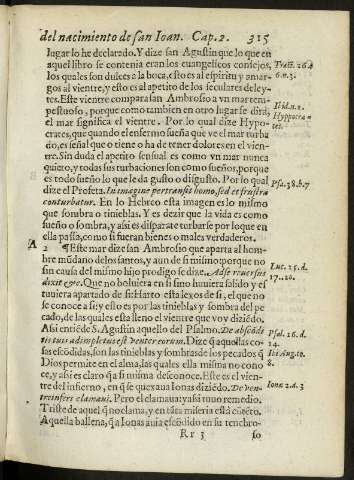 del nacimiento de san Ioan. Cap. 2. 315
lugar lo ha declarado. Y dize san Agustin que lo que en
aquel libro se contenia eran los euangelicos consejos,
los quales son dulces a la boca, esto es al espiritu y amar-
gos al vientre, y esto es al apetito de los seculares deley-
tes. Este vientre compara san Ambrosio a vn mar tem-
pestuoso, porque como tambien en otro lugar se dira,
el mar significa el vientre. Por lo qual dize Hypo-
crates, que quando el enfermo sueña que ve el mar turba
do, es señal que o tiene o ha de tener dolores en el vien-
tre. Sin duda el apetito sensual es como vn mar nunca
quieto, y todas sus turbaciones son como sueños, porque
es todo sueño lo que le da gusto o disgusto. Por lo qual
dize el Profeta. In imagine pertransit homo, sed et frustra
conturbatur. En lo Hebreo esta imagen es lo mismo
que sombra o tinieblas. Y es dezir que la vida es como
sueño o sombra, y assi es disparate turbarse por lo que en
ella passa, como si fueran bienes o males verdaderos.
A 2 ¶ Este mar dize san Ambrosio que aparta al hom-
bre mūdano de los santos, y aun de si mismo: porque no
sin causa del mismo hijo prodigo se dize. Ad se reuersus
dixit &c. Que no boluiera en si sino huuiera salido y es
tuuiera apartado de si: Harto esta lexos de si, el que no
se conoce a si; y esto es por las tinieblas y sombra del pe
cado, de las quales esta lleno el vientre que voy diziēdo.
Assi entiēde S. Agustin aquello del Psalmo. De abscōdi
tis tuis adimpletus est venter eorum. Dize q̄ aquellas co-
sas escōdidas, son las tinieblas y sombras de los pecados q̄
Dios permite en el alma, las quales ella misma no cono
ce, y assi es claro q̄ a si misma desconoce. Este es el vien-
tre del infierno, en q̄ se quexaua Ionas diziēdo. De ven-
tre inferi clamaui. Pero el clamaua: y assi tuuo remedio.
Triste de aquel q̄ no clama, y en tāta miseria està cōtēto.
Aquella ballena, q̄ a Ionas auia escōdido en su tenebro-
Rr 3 so
Tract. 26.
6. n. 3.
Ibid. n. 2.
Hyppocra
tes.
Psa. 38. b. 7
Luc. 15. d.
17.
Psal. 16. d.
14.
Ibi Augus.
8.
Ionæ 2. d. 3